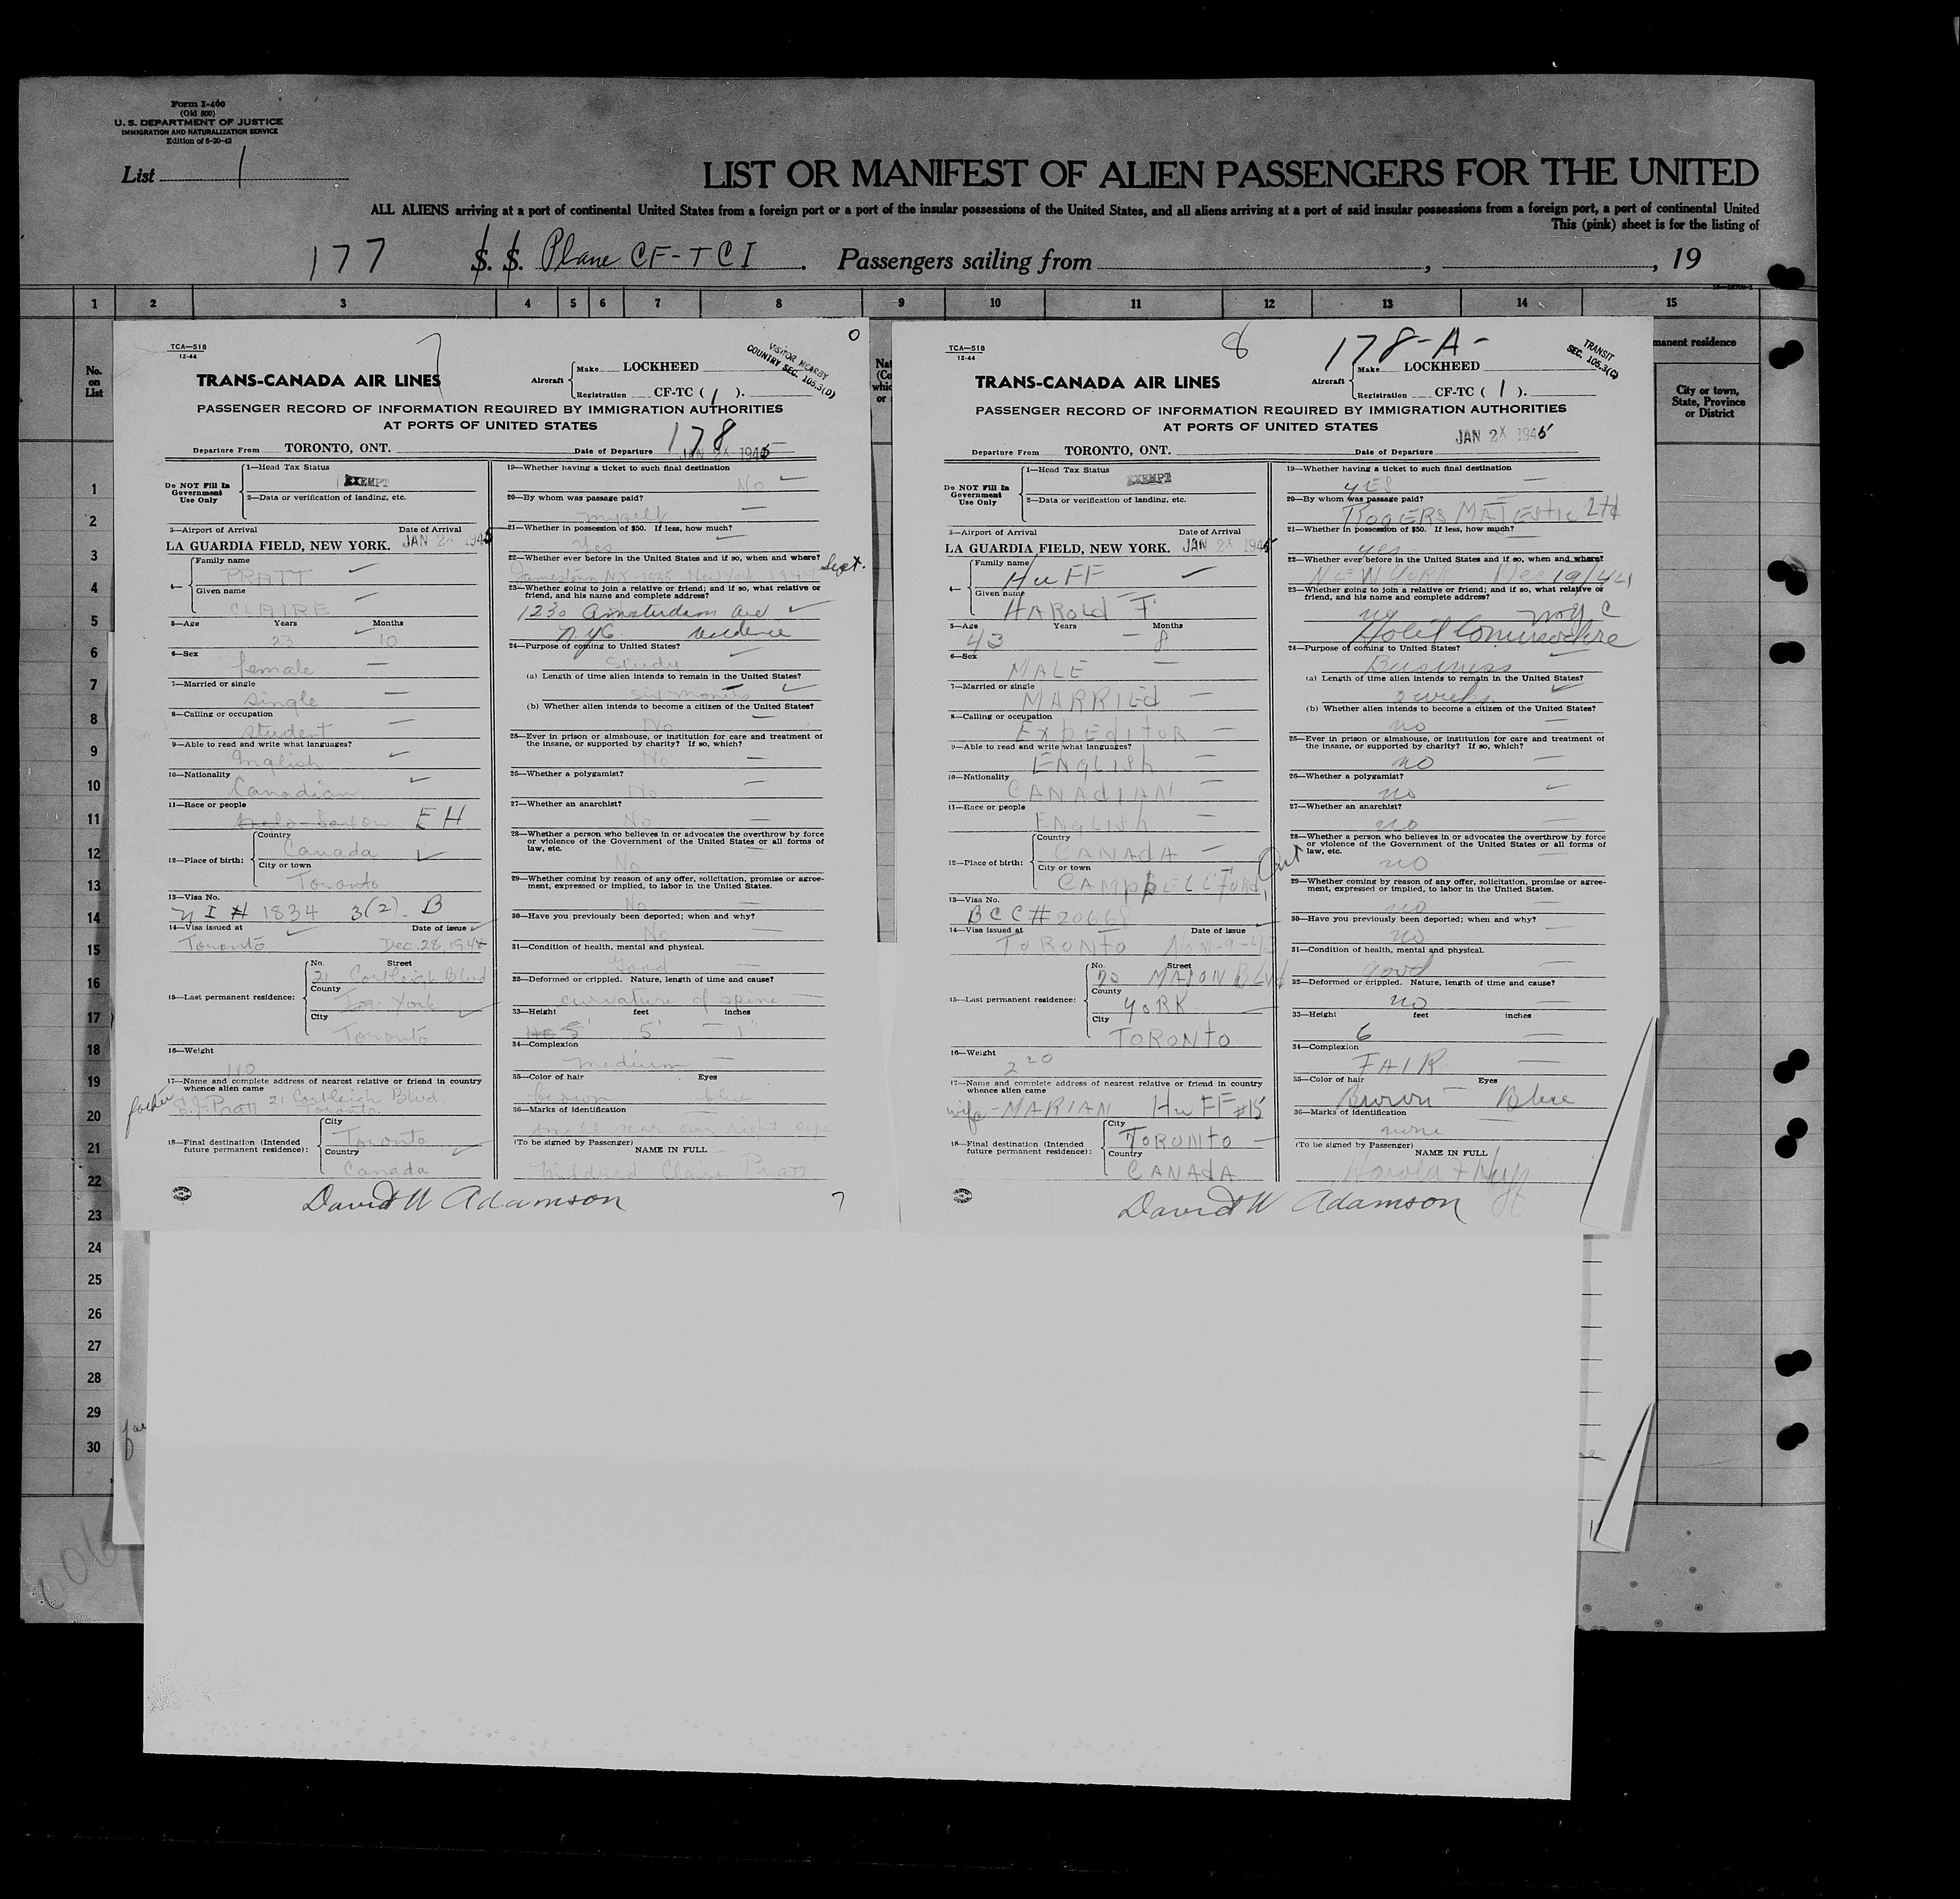 Form I-400
(Old 500)
U. S. DEPARTMENT OF JUSTICE
IMMIGRATION AND NATURALIZATION SERVICE
Edition of 6-20-42
List 1
LIST OR MANIFEST OF ALIEN PASSENGERS FOR THE UNITED
ALL ALIENS arriving at a port of continental United States from a foreign port or a port of the insular possessions of the United States, and all aliens arriving at a port of said insular possessions from a foreign port, a port of continental United
This (pink) sheet is for the listing of
177 S. S. Plane CF-TCI. Passengers sailing from , , 19
1 2 3 4 5 6 7 8 9 10 11 12 13 14 15
No. on List
manent residence
City or town, State, Province or District
1
2
3
4
5
6
7
8
9
10
11
12
13
14
15
16
17
18
19
20
21
22
23
24
25
26
27
28
29
30
TCA—518
12-44
7
0
VISITOR NEARBY
COUNTRY SEC. 105.3(D)
TRANS-CANADA AIR LINES
Aircraft Make LOCKHEED
Registration CF-TC ( 1 ).
PASSENGER RECORD OF INFORMATION REQUIRED BY IMMIGRATION AUTHORITIES
AT PORTS OF UNITED STATES
178
Departure From TORONTO, ONT. Date of Departure JAN 2 X 1945
Do NOT Fill In Government Use Only
1—Head Tax Status
EXEMPT
2—Data or verification of landing, etc.
3—Airport of Arrival Date of Arrival
LA GUARDIA FIELD, NEW YORK. JAN 2 X 1945
4— Family name
PRATT
Given name
CLAIRE
5—Age Years Months
23 10
6—Sex
female
7—Married or single
single
8—Calling or occupation
student
9—Able to read and write what languages?
English
10—Nationality
Canadian
11—Race or people
Anglo-Saxon EH
12—Place of birth: Country
Canada
City or town
Toronto
13—Visa No.
NI # 1834 3(2). B
14—Visa issued at Date of issue
Toronto Dec. 28, 1944
15—Last permanent residence: No. Street
21 Cortleigh Blvd
County
York
City
Toronto
16—Weight
110
17—Name and complete address of nearest relative or friend in country whence alien came
father E.J. Pratt 21 Cortleigh Blvd.
Toronto.
18—Final destination (Intended future permanent residence): City
Toronto
Country
Canada
19—Whether having a ticket to such final destination
No
20—By whom was passage paid?
myself
21—Whether in possession of $50. If less, how much?
Yes
22—Whether ever before in the United States and if so, when and where?
Jamestown N.Y. - 1935 New York 1944 Sept.
23—Whether going to join a relative or friend; and if so, what relative or friend, and his name and complete address?
1230 Amsterdam Ave
N.Y.C. residence
24—Purpose of coming to United States?
Study
(a) Length of time alien intends to remain in the United States?
six months
(b) Whether alien intends to become a citizen of the United States?
No
25—Ever in prison or almshouse, or institution for care and treatment of the insane, or supported by charity? If so, which?
No
26—Whether a polygamist?
No
27—Whether an anarchist?
No
28—Whether a person who believes in or advocates the overthrow by force or violence of the Government of the United States or all forms of law, etc.
No
29—Whether coming by reason of any offer, solicitation, promise or agreement, expressed or implied, to labor in the United States.
No
30—Have you previously been deported; when and why?
No
31—Condition of health, mental and physical.
Good
32—Deformed or crippled. Nature, length of time and cause?
curvature of spine
33—Height feet inches
5' 1"
34—Complexion
medium
35—Color of hair Eyes
brown blue
36—Marks of identification
small scar over right eye
(To be signed by Passenger) NAME IN FULL
Mildred Claire Pratt
David W Adamson
7
TCA—518
12-44
8
178-A-
TRANSIT
SEC. 105.3(C)
TRANS-CANADA AIR LINES
Aircraft Make LOCKHEED
Registration CF-TC ( 1 ).
PASSENGER RECORD OF INFORMATION REQUIRED BY IMMIGRATION AUTHORITIES
AT PORTS OF UNITED STATES
JAN 2 X 1945
Departure From TORONTO, ONT. Date of Departure
Do NOT Fill In Government Use Only
1—Head Tax Status
EXEMPT
2—Data or verification of landing, etc.
3—Airport of Arrival Date of Arrival
LA GUARDIA FIELD, NEW YORK. JAN 2 X 1945
4— Family name
HuFF
Given name
HAROLd F
5—Age Years Months
43 8
6—Sex
MALE
7—Married or single
MARRIEd
8—Calling or occupation
EXPEditOR
9—Able to read and write what languages?
ENGLISh
10—Nationality
CANAdIAN
11—Race or people
ENGLISh
12—Place of birth: Country
CANAdA
City or town
CAMPbELLFORd, Ont
13—Visa No.
BCC# 20668
14—Visa issued at Date of issue
TORONTO Nov-9-43
15—Last permanent residence: No. Street
70 BLvd
County
YORK
City
TORONTO
16—Weight
220
17—Name and complete address of nearest relative or friend in country whence alien came
wife - MARIAN HuFF #15
18—Final destination (Intended future permanent residence): City
TORONTO
Country
CANAdA
19—Whether having a ticket to such final destination
YES
20—By whom was passage paid?
ROGERS MAJEStic Ltd
21—Whether in possession of $50. If less, how much?
yes
22—Whether ever before in the United States and if so, when and where?
NEW YORK Dec 19/44
23—Whether going to join a relative or friend; and if so, what relative or friend, and his name and complete address?
no N.Y.C
Hotel Commodore
24—Purpose of coming to United States?
Business
(a) Length of time alien intends to remain in the United States?
2 weeks.
(b) Whether alien intends to become a citizen of the United States?
no
25—Ever in prison or almshouse, or institution for care and treatment of the insane, or supported by charity? If so, which?
no
26—Whether a polygamist?
no
27—Whether an anarchist?
no
28—Whether a person who believes in or advocates the overthrow by force or violence of the Government of the United States or all forms of law, etc.
no
29—Whether coming by reason of any offer, solicitation, promise or agreement, expressed or implied, to labor in the United States.
no
30—Have you previously been deported; when and why?
no
31—Condition of health, mental and physical.
good
32—Deformed or crippled. Nature, length of time and cause?
no
33—Height feet inches
6
34—Complexion
FAIR
35—Color of hair Eyes
Brown Blue
36—Marks of identification
none
(To be signed by Passenger) NAME IN FULL
Harold F Huff
David W Adamson